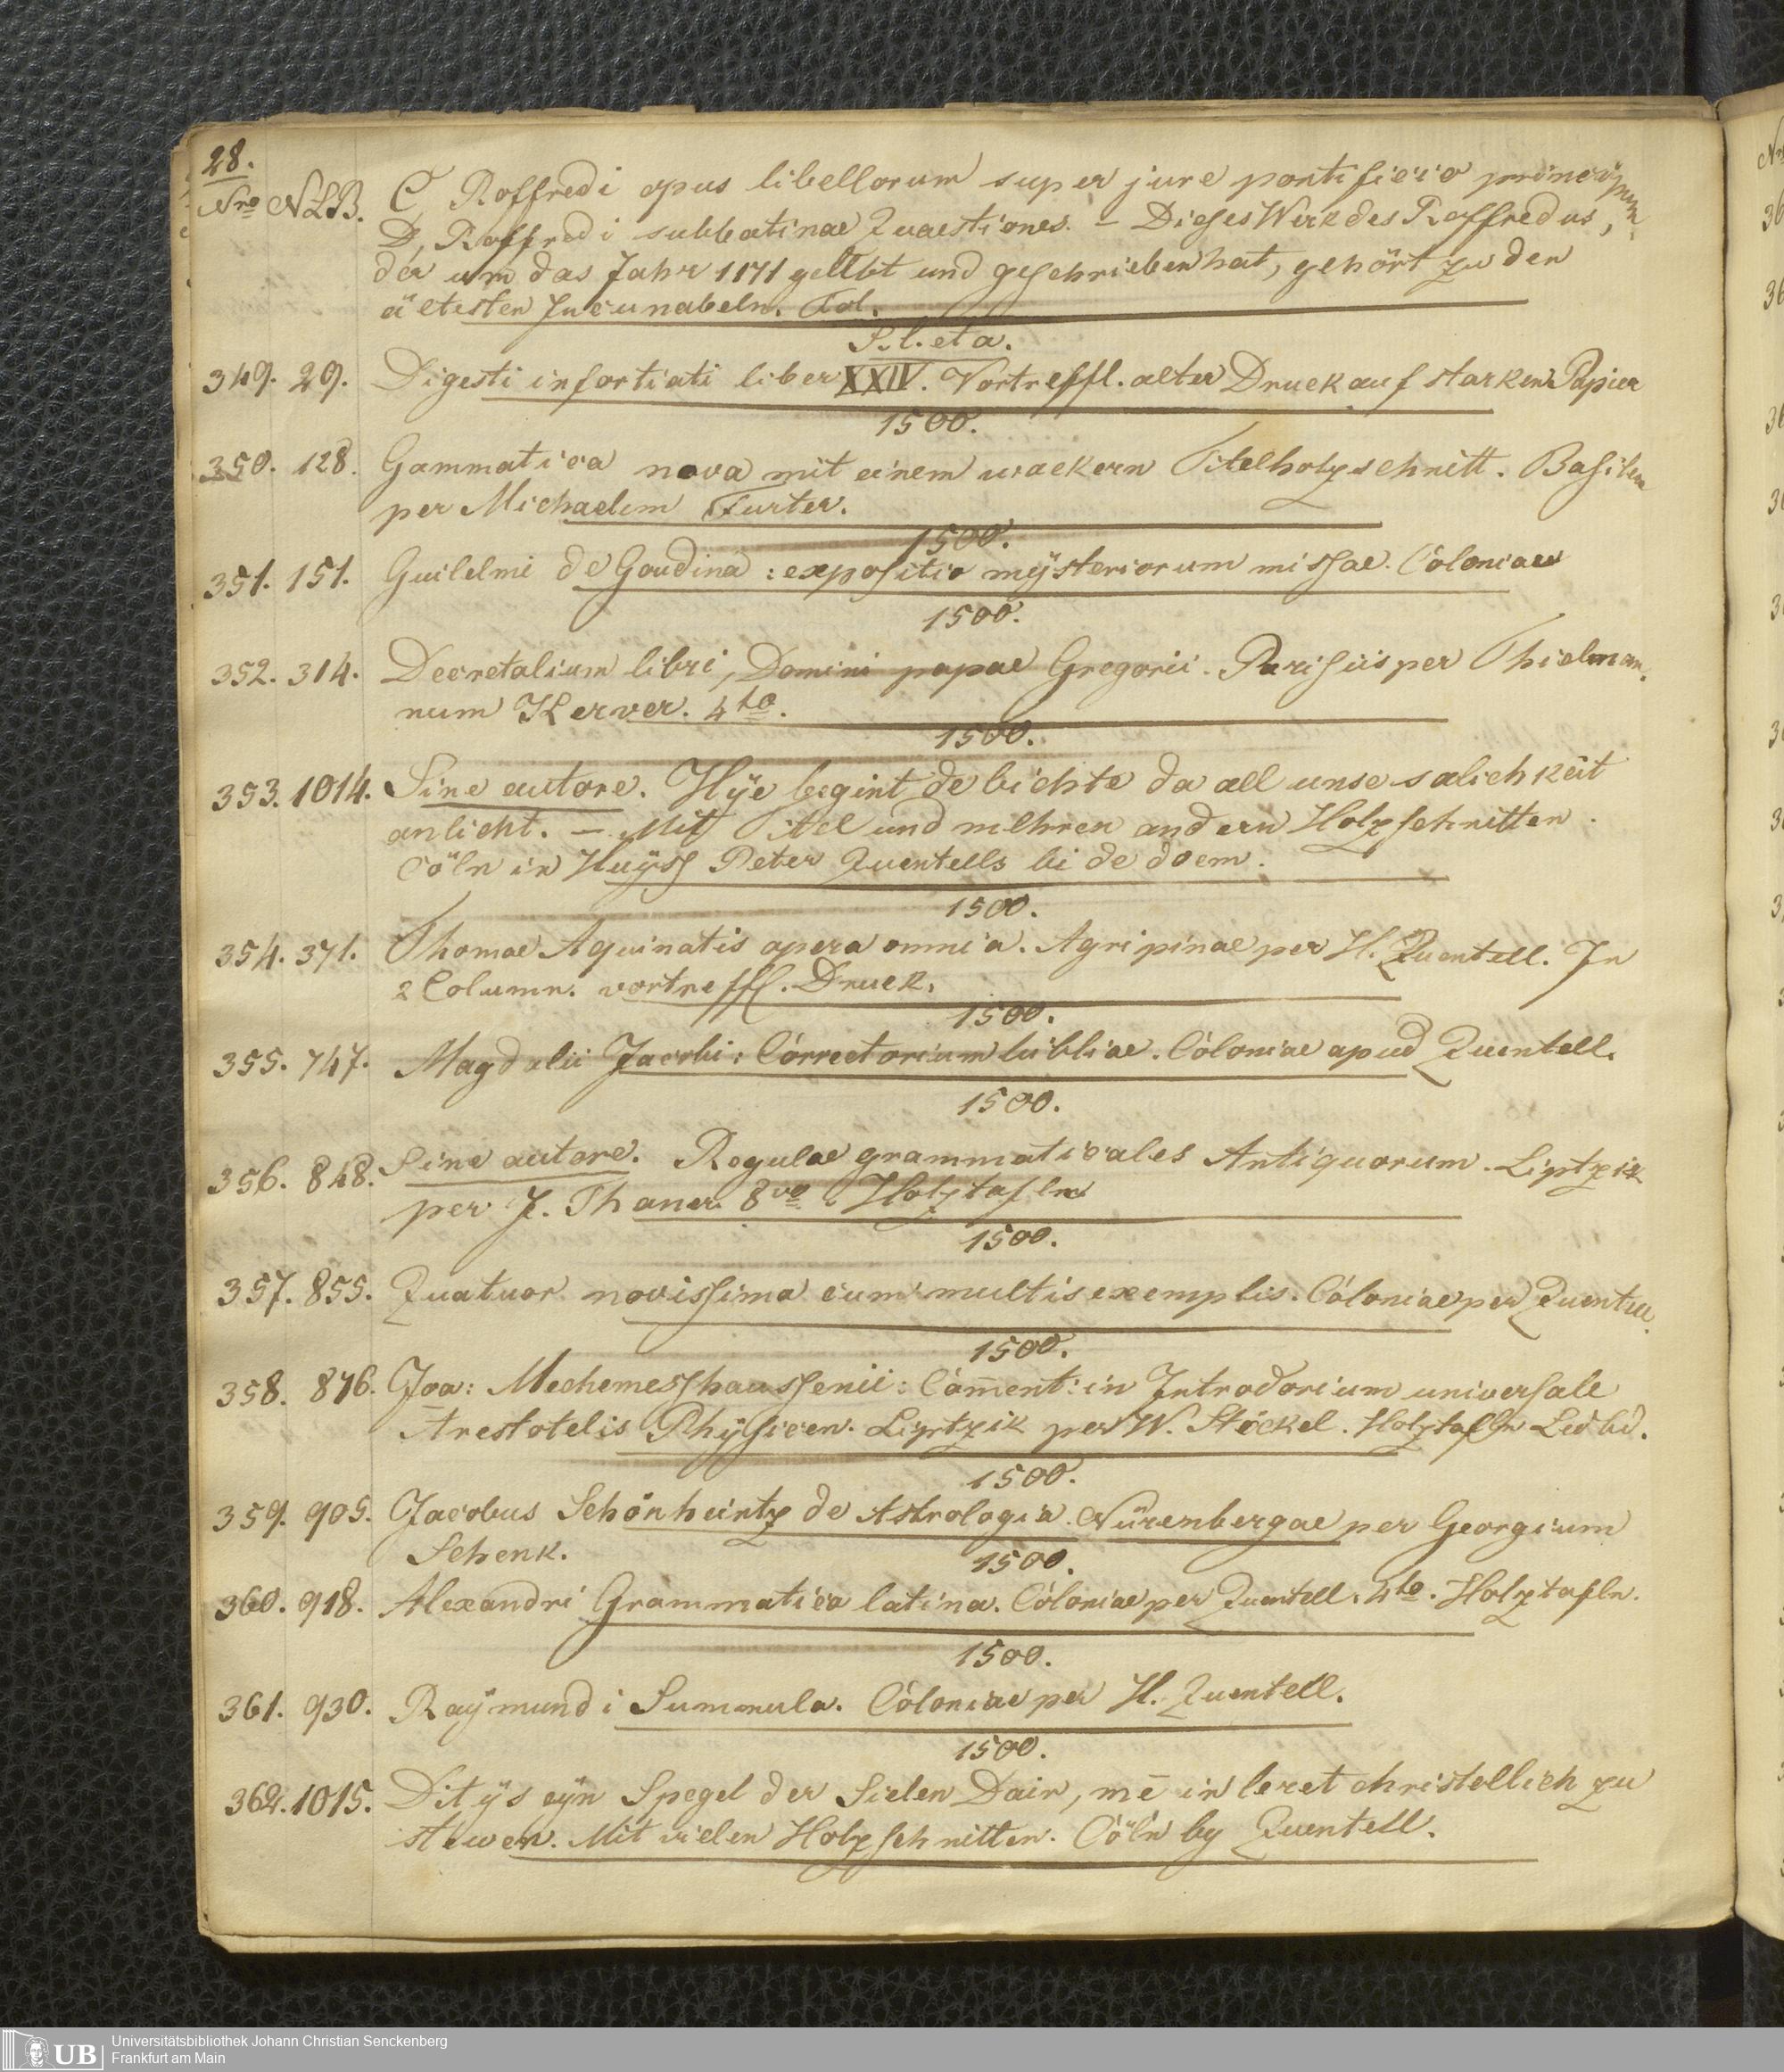 28.
Nro NLB. C Roffredi opus libellorum super jure pontificio
D, Roffredi subbatinae Quaestiones. – Dieses Werk des Roffredus,
der um das Jahr 1171 gelebt und geschrieben hat, gehört zu den
ältesten Incunabeln. Fol.
S. l. et a.
349. 29. Digesti infortiati liber XXIV. Vortreffl. alter Druck auf starken Papier
1500.
350. 128. Gammatica nova mit einem wackern Titelholzschnitt. Basileae
per Michaelem Furter.
1500.
351. 151. Guilelmi de Goudina: expositio mÿsteriorum missae. Coloniae
1500.
352. 314. Decretalium libri, Domini papae Gregorii. Parisiis per Thielman,
num Kerver. 4to.
1500.
353. 1014. Sine autore. Hÿe begint de bichte da all unse salichkeit
anlicht. – Mit Titel und mehren andern Holzschnitten.
Cöln in Huÿss Peter Quentells bi de doem.
1500.
354. 371. Thomae Aquinatis opera omnia. Agripinae per H. Quentell. In
2 Column. vortreffl. Druck.
1500.
355. 747. Magdalii Jacobi: Correctorium bibliae. Coloniae apud Quentell.
1500.
356. 848. Sine autore. Regulae grammaticales Antiquorum. Liptzik
per J. Thaner. 8vo. Holztafln
1500.
357. 855. Quatuor novissima cum multis exemplis. Coloniae per Quentell.
1500.
358. 876. Joa: Mechemesshaussenii: Com̄ent: in Introdorium universale
Arestotelis Phÿsicen. Liptzik per W. Stöckel. Holztafln Led bd.
1500.
359. 905. Jacobus Schönheintz de Astrologia. Nürenbergae per Georgium
Schenk.
1500.
360. 918. Alexandri Grammatica latina. Coloniae per Quentell. 4to. Holztafln.
1500.
361. 930. Raÿmundi Summula. Coloniae per H. Quentell.
1500.
362. 1015. Dit ÿs eÿn Spegel der Sielen Dair, mē in leret christellich zu
stewen. Mit vielen Holzschnitten. Cöln by Quentell.
UB
Universitätsbibliothek Johann Christian Senckenberg
Frankfurt am Main